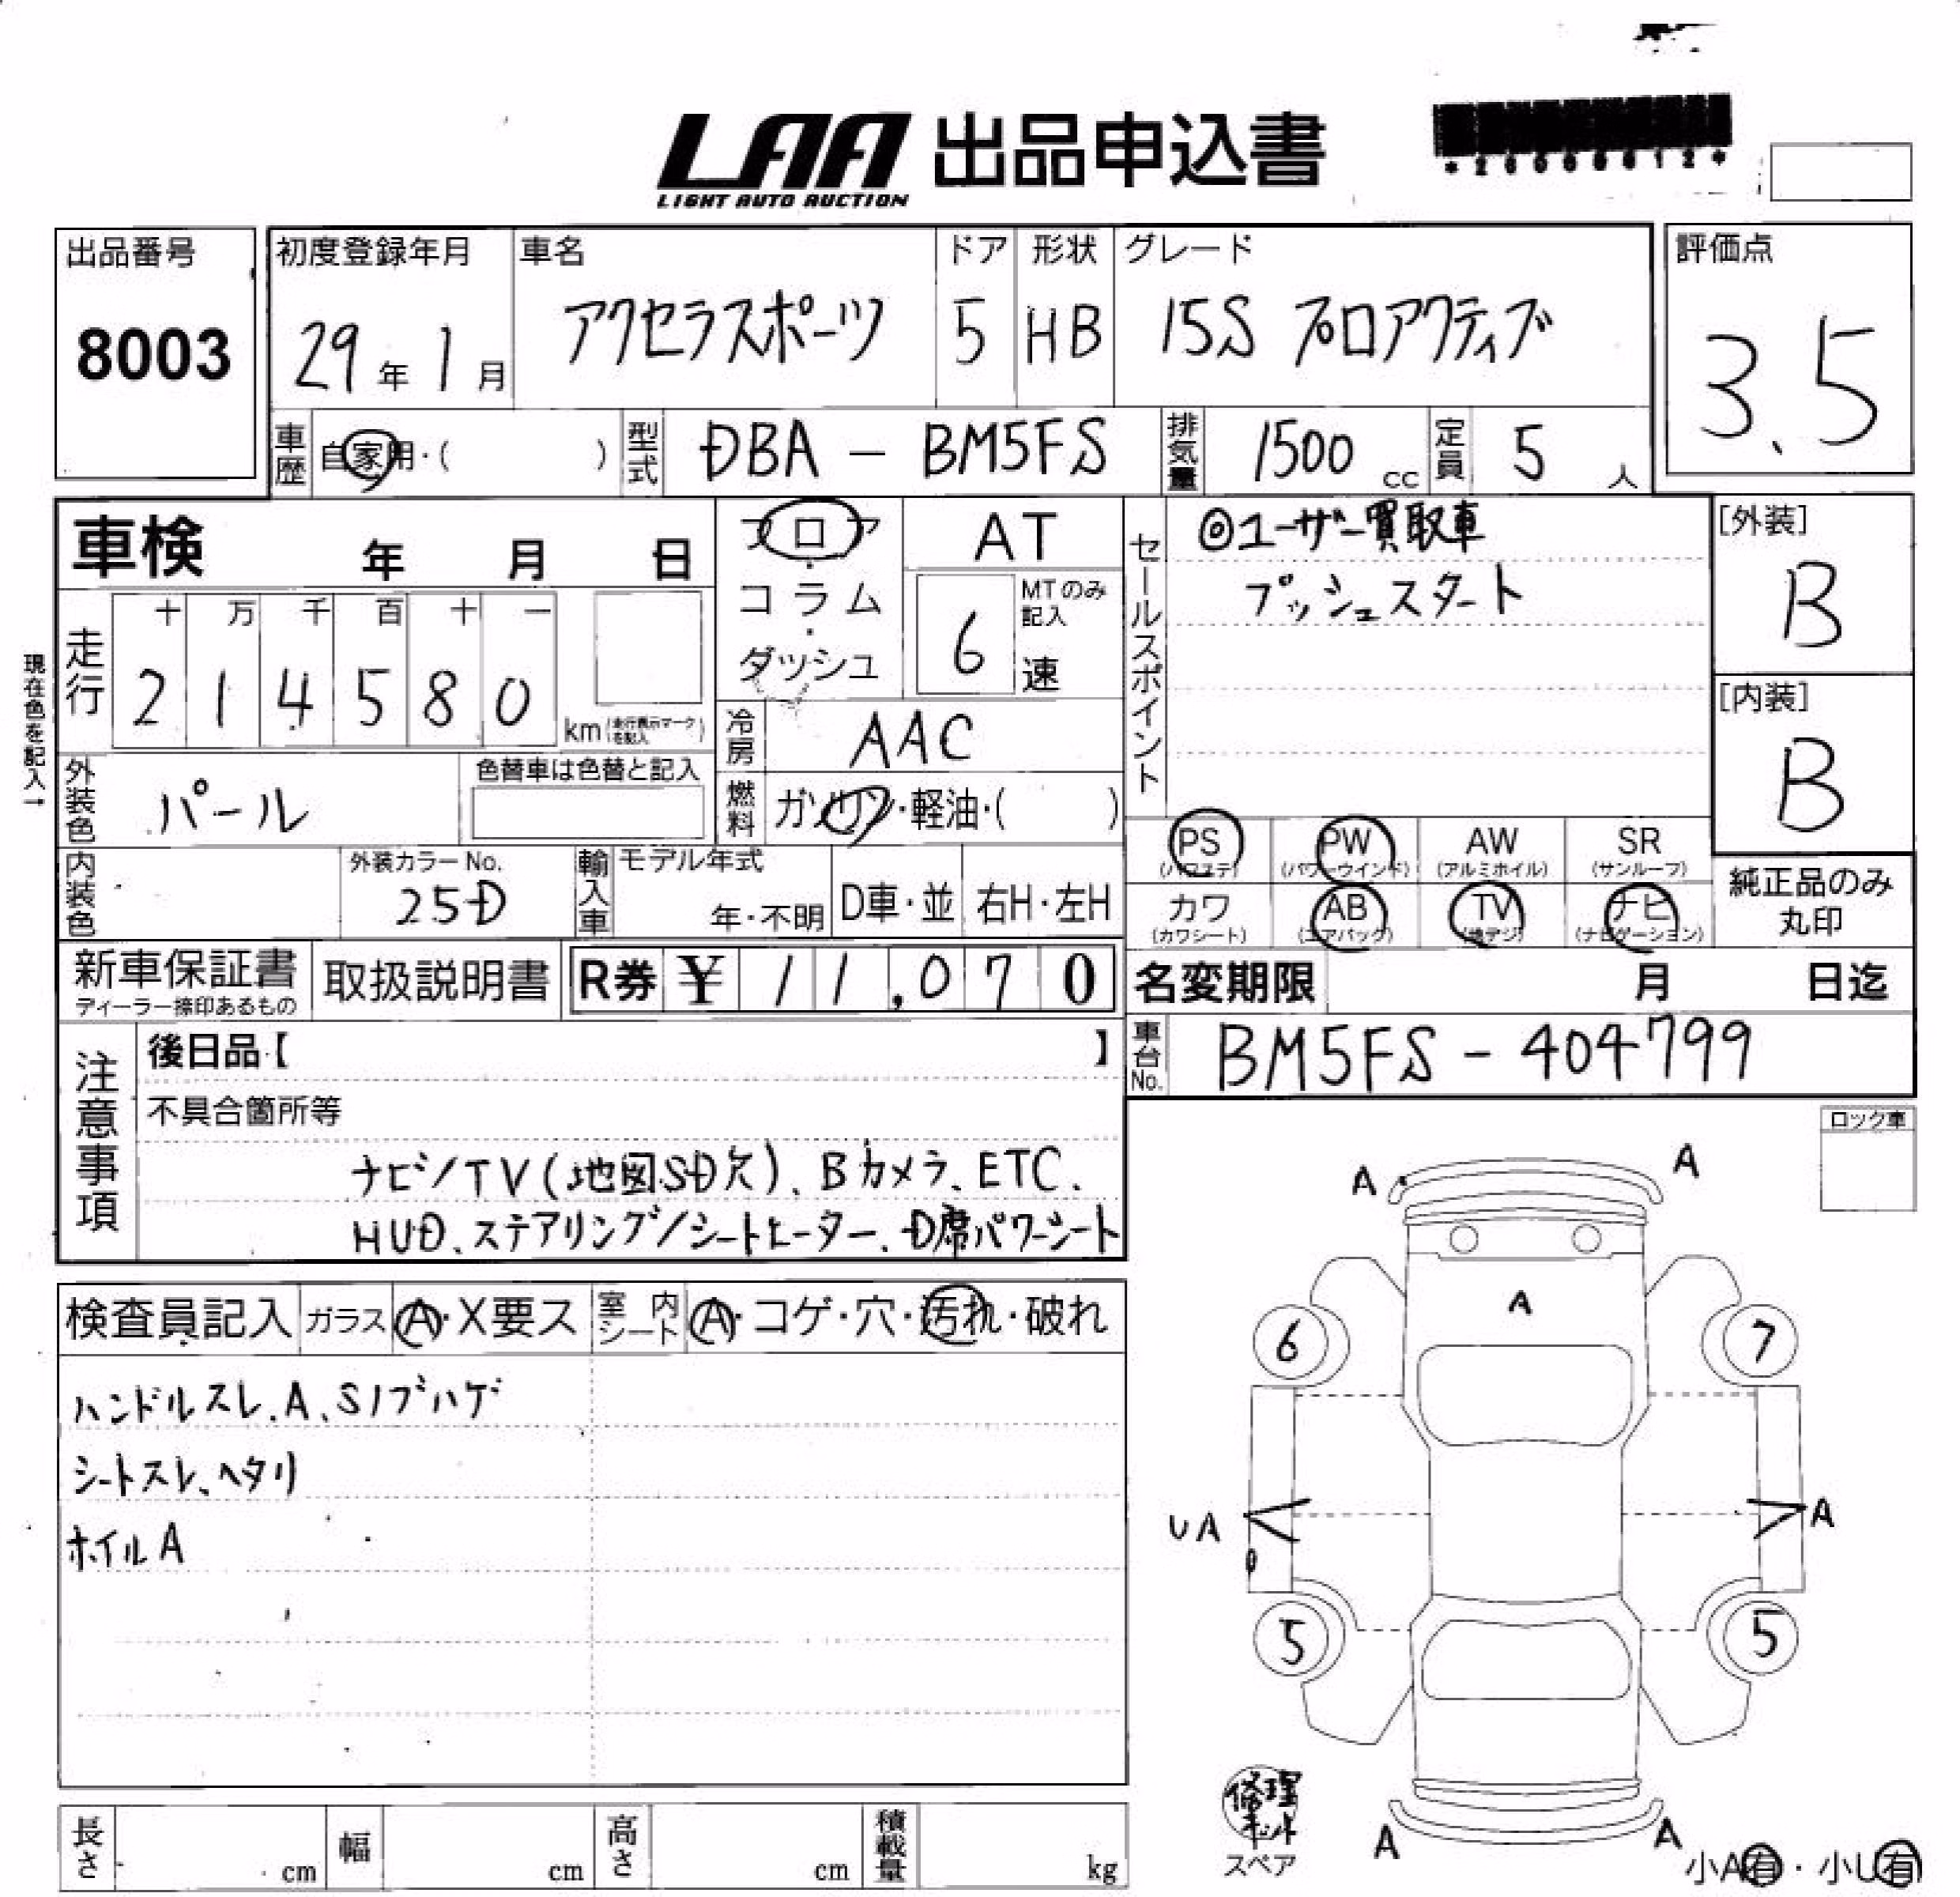 LAA 出品申込書
LIGHT AUTO AUCTION
出品番号
8003
初度登録年月
29年1月
車名
アクセラスポーツ
ドア
5
形状
HB
グレード
15S プロアクティブ
評価点
3.5
車歴
自家用・( )
型式
DBA - BM5FS
排気量
1500 cc
定員
5 人
車検 年 月 日
フロア・コラム・ダッシュ
AT
6 速
MTのみ記入
セールスポイント
◎ユーザー買取車
プッシュスタート
[外装]
B
[内装]
B
現在色を記入→
走行
十 万 千 百 十 一
2 1 4 5 8 0
km (走行表示マークを記入)
冷房
AAC
外装色
パール
色替車は色替と記入
燃料
ガソリン・軽油・( )
PS (パワステ)
PW (パワーウインド)
AW (アルミホイル)
SR (サンルーフ)
カワ (カワシート)
AB (エアバック)
TV (地デジ)
ナビ (ナビゲーション)
純正品のみ
丸印
内装色
外装カラーNo.
25D
輸入車
モデル年式
年・不明
D車・並
右H・左H
新車保証書
ディーラー捺印あるもの
取扱説明書
R券 ¥ 11,070
名変期限 月 日迄
車台No.
BM5FS - 404799
注意事項
後日品【 】
不具合箇所等
ナビ/TV(地図SD欠)、Bカメラ、ETC、
HUD、ステアリング/シートヒーター、D席パワーシート
ロック車
検査員記入
ガラス
A・X要ス
室内シート
A・コゲ・穴・汚れ・破れ
ハンドルスレ、A、Sノブハゲ
シートスレ、ヘタリ
ホイルA
A
A
A
6
7
UA
A
5
5
A
A
修理キット
スペア
小A有・小U有
長さ cm
幅 cm
高さ cm
積載量 kg